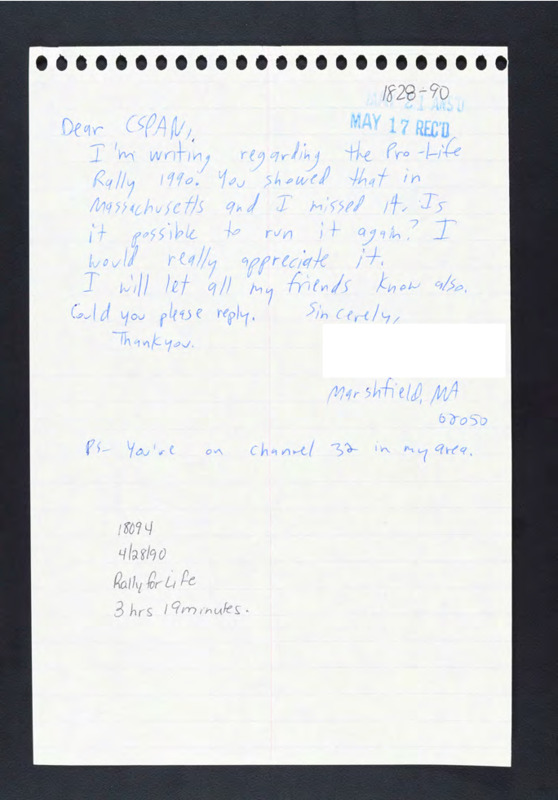 1828-90
MAY 21 ANS'D
MAY 17 REC'D
Dear CSPAN,
I'm writing regarding the Pro-Life
Rally 1990. You showed that in
Massachusetts and I missed it. Is
it possible to run it again? I
would really appreciate it.
I will let all my friends know also.
Could you please reply. Sincerely,
Thankyou.
Marshfield, MA
02050
PS- You're on channel 32 in my area.
18094
4/28/90
Rally for Life
3 hrs 19 minutes.